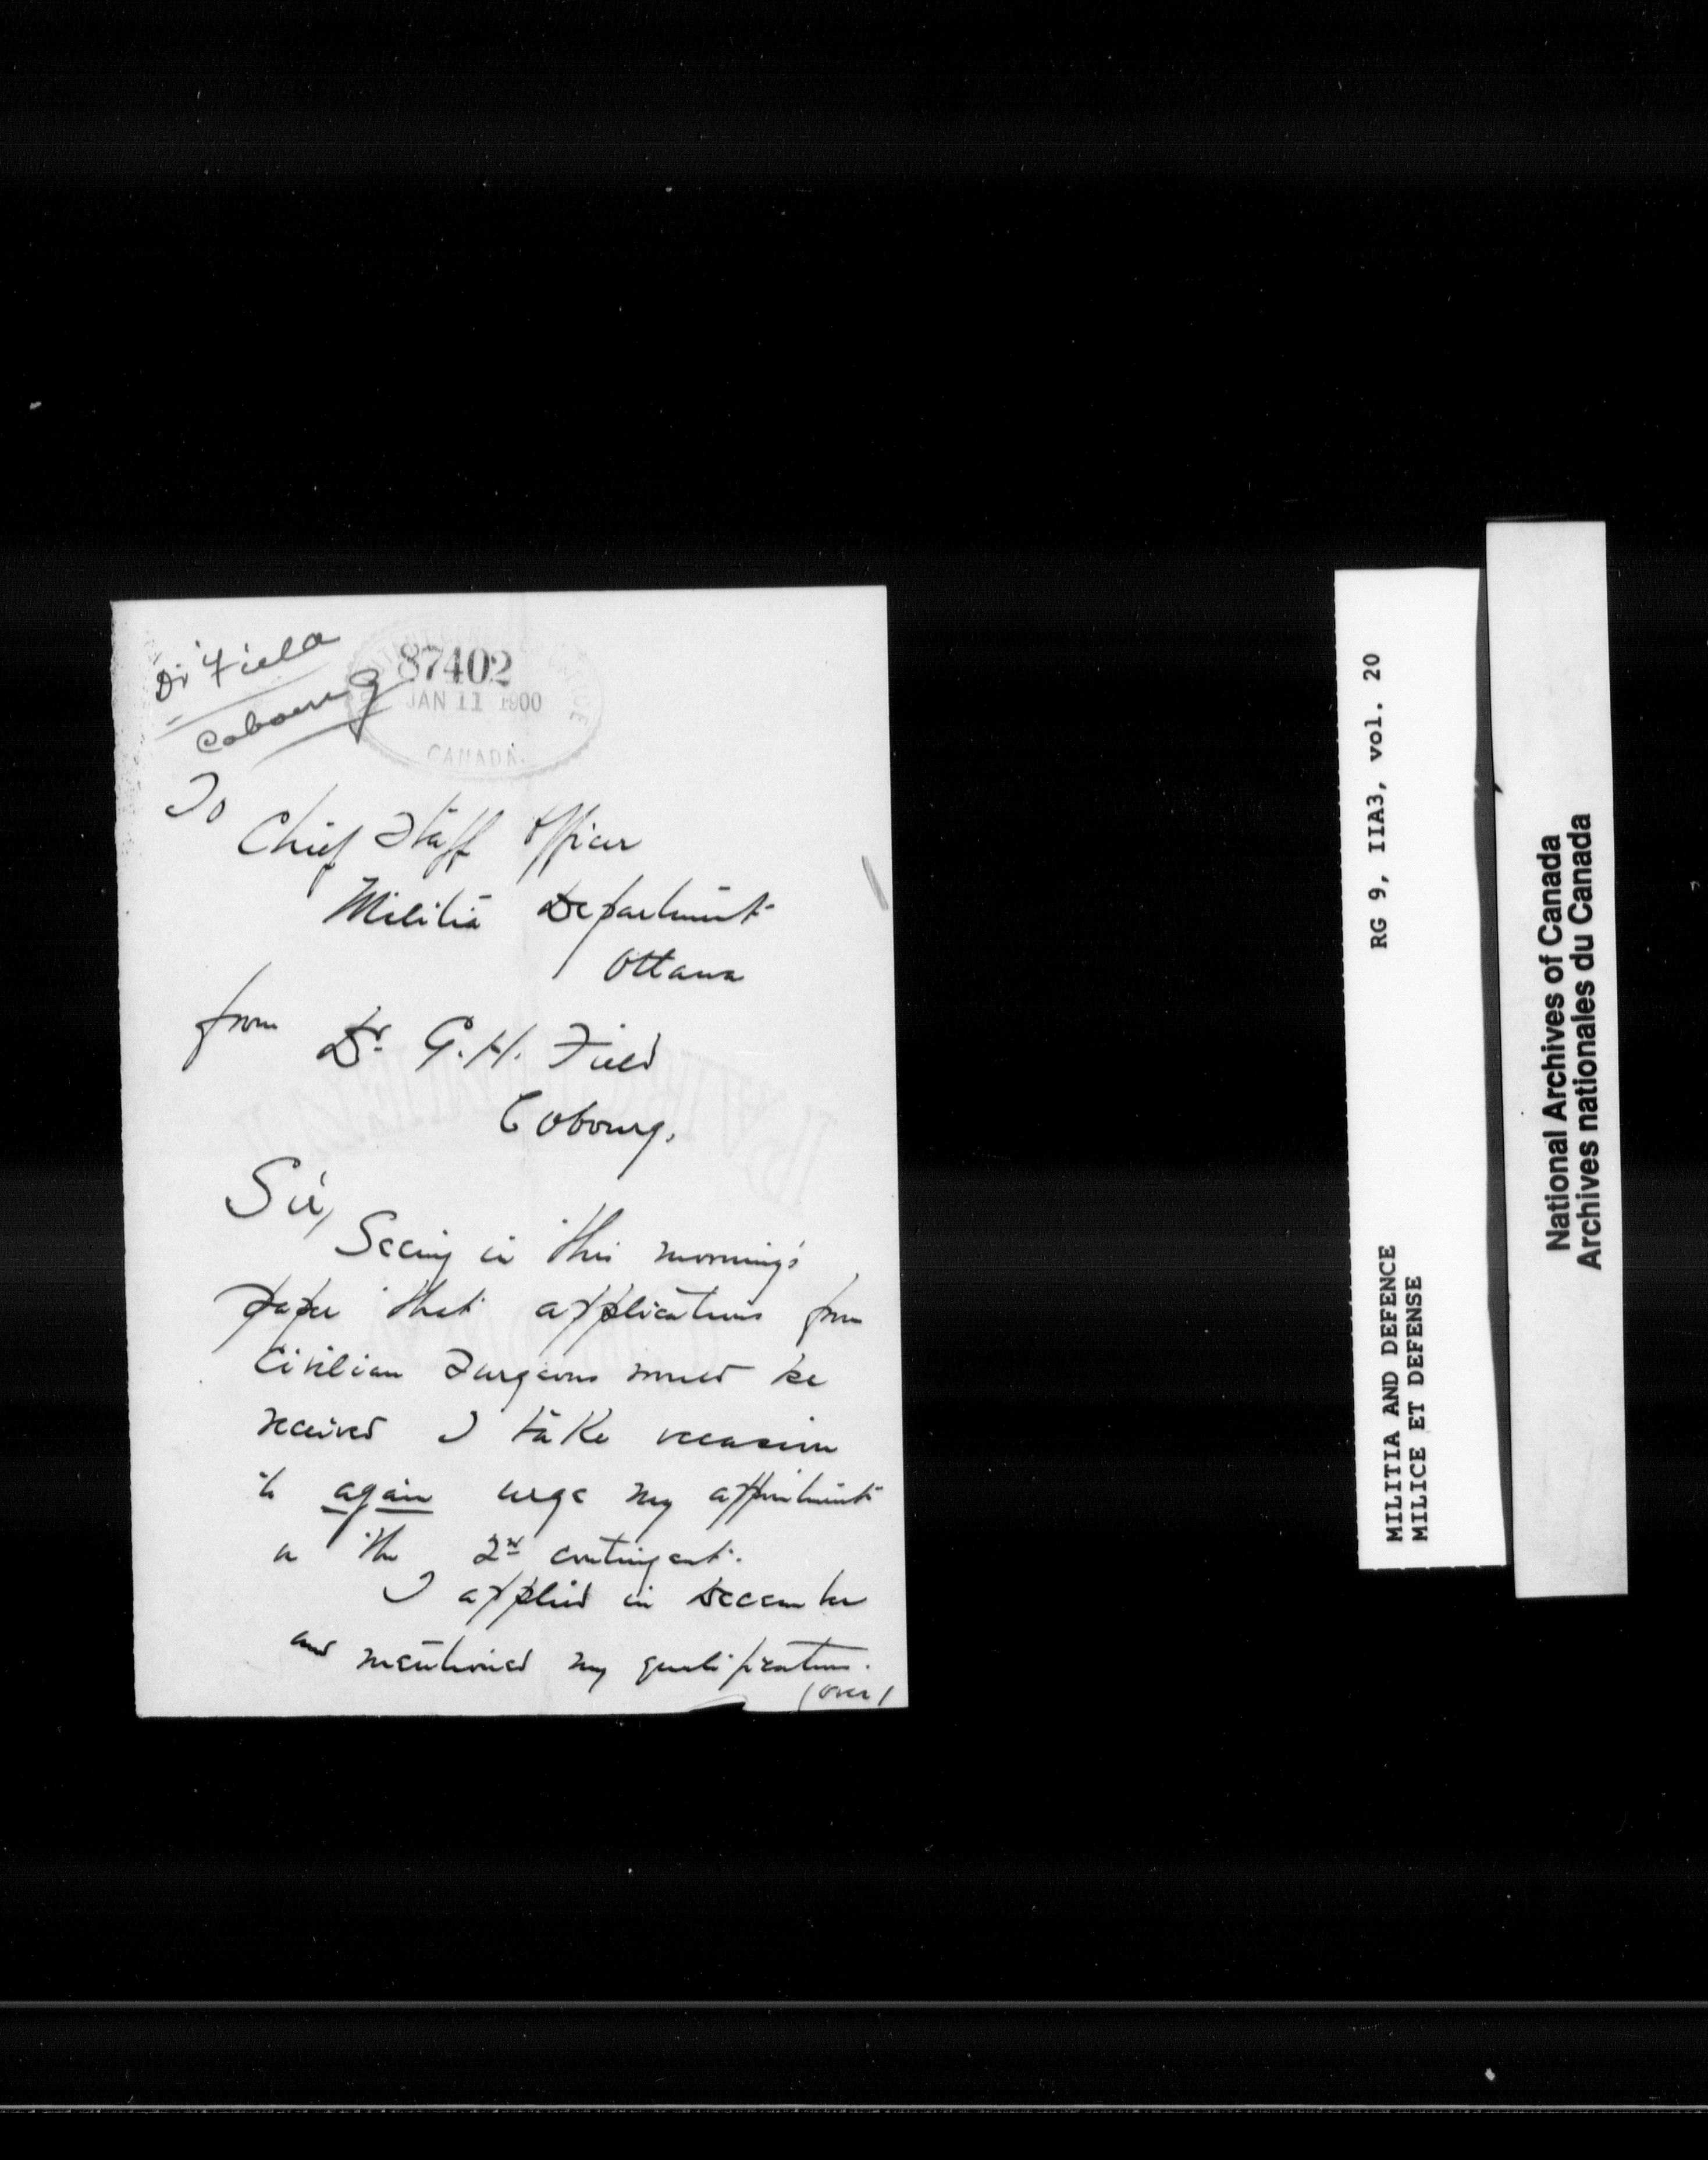 Dr Field
Cobourg
87402
JAN 11 1900
CANADA.
To
Chief Staff Officer
Militia Department
Ottawa
from Dr. G. H. Field
Cobourg.
Sir,
Seeing in this morning's
paper that applications from
Civilian Surgeons would be
received I take occasion
to again urge my appointment
in the 2nd contingent.
I applied in December
and mentioned my qualifications.
(over)
RG 9, IIA3, vol. 20
MILITIA AND DEFENCE
MILICE ET DEFENSE
National Archives of Canada
Archives nationales du Canada